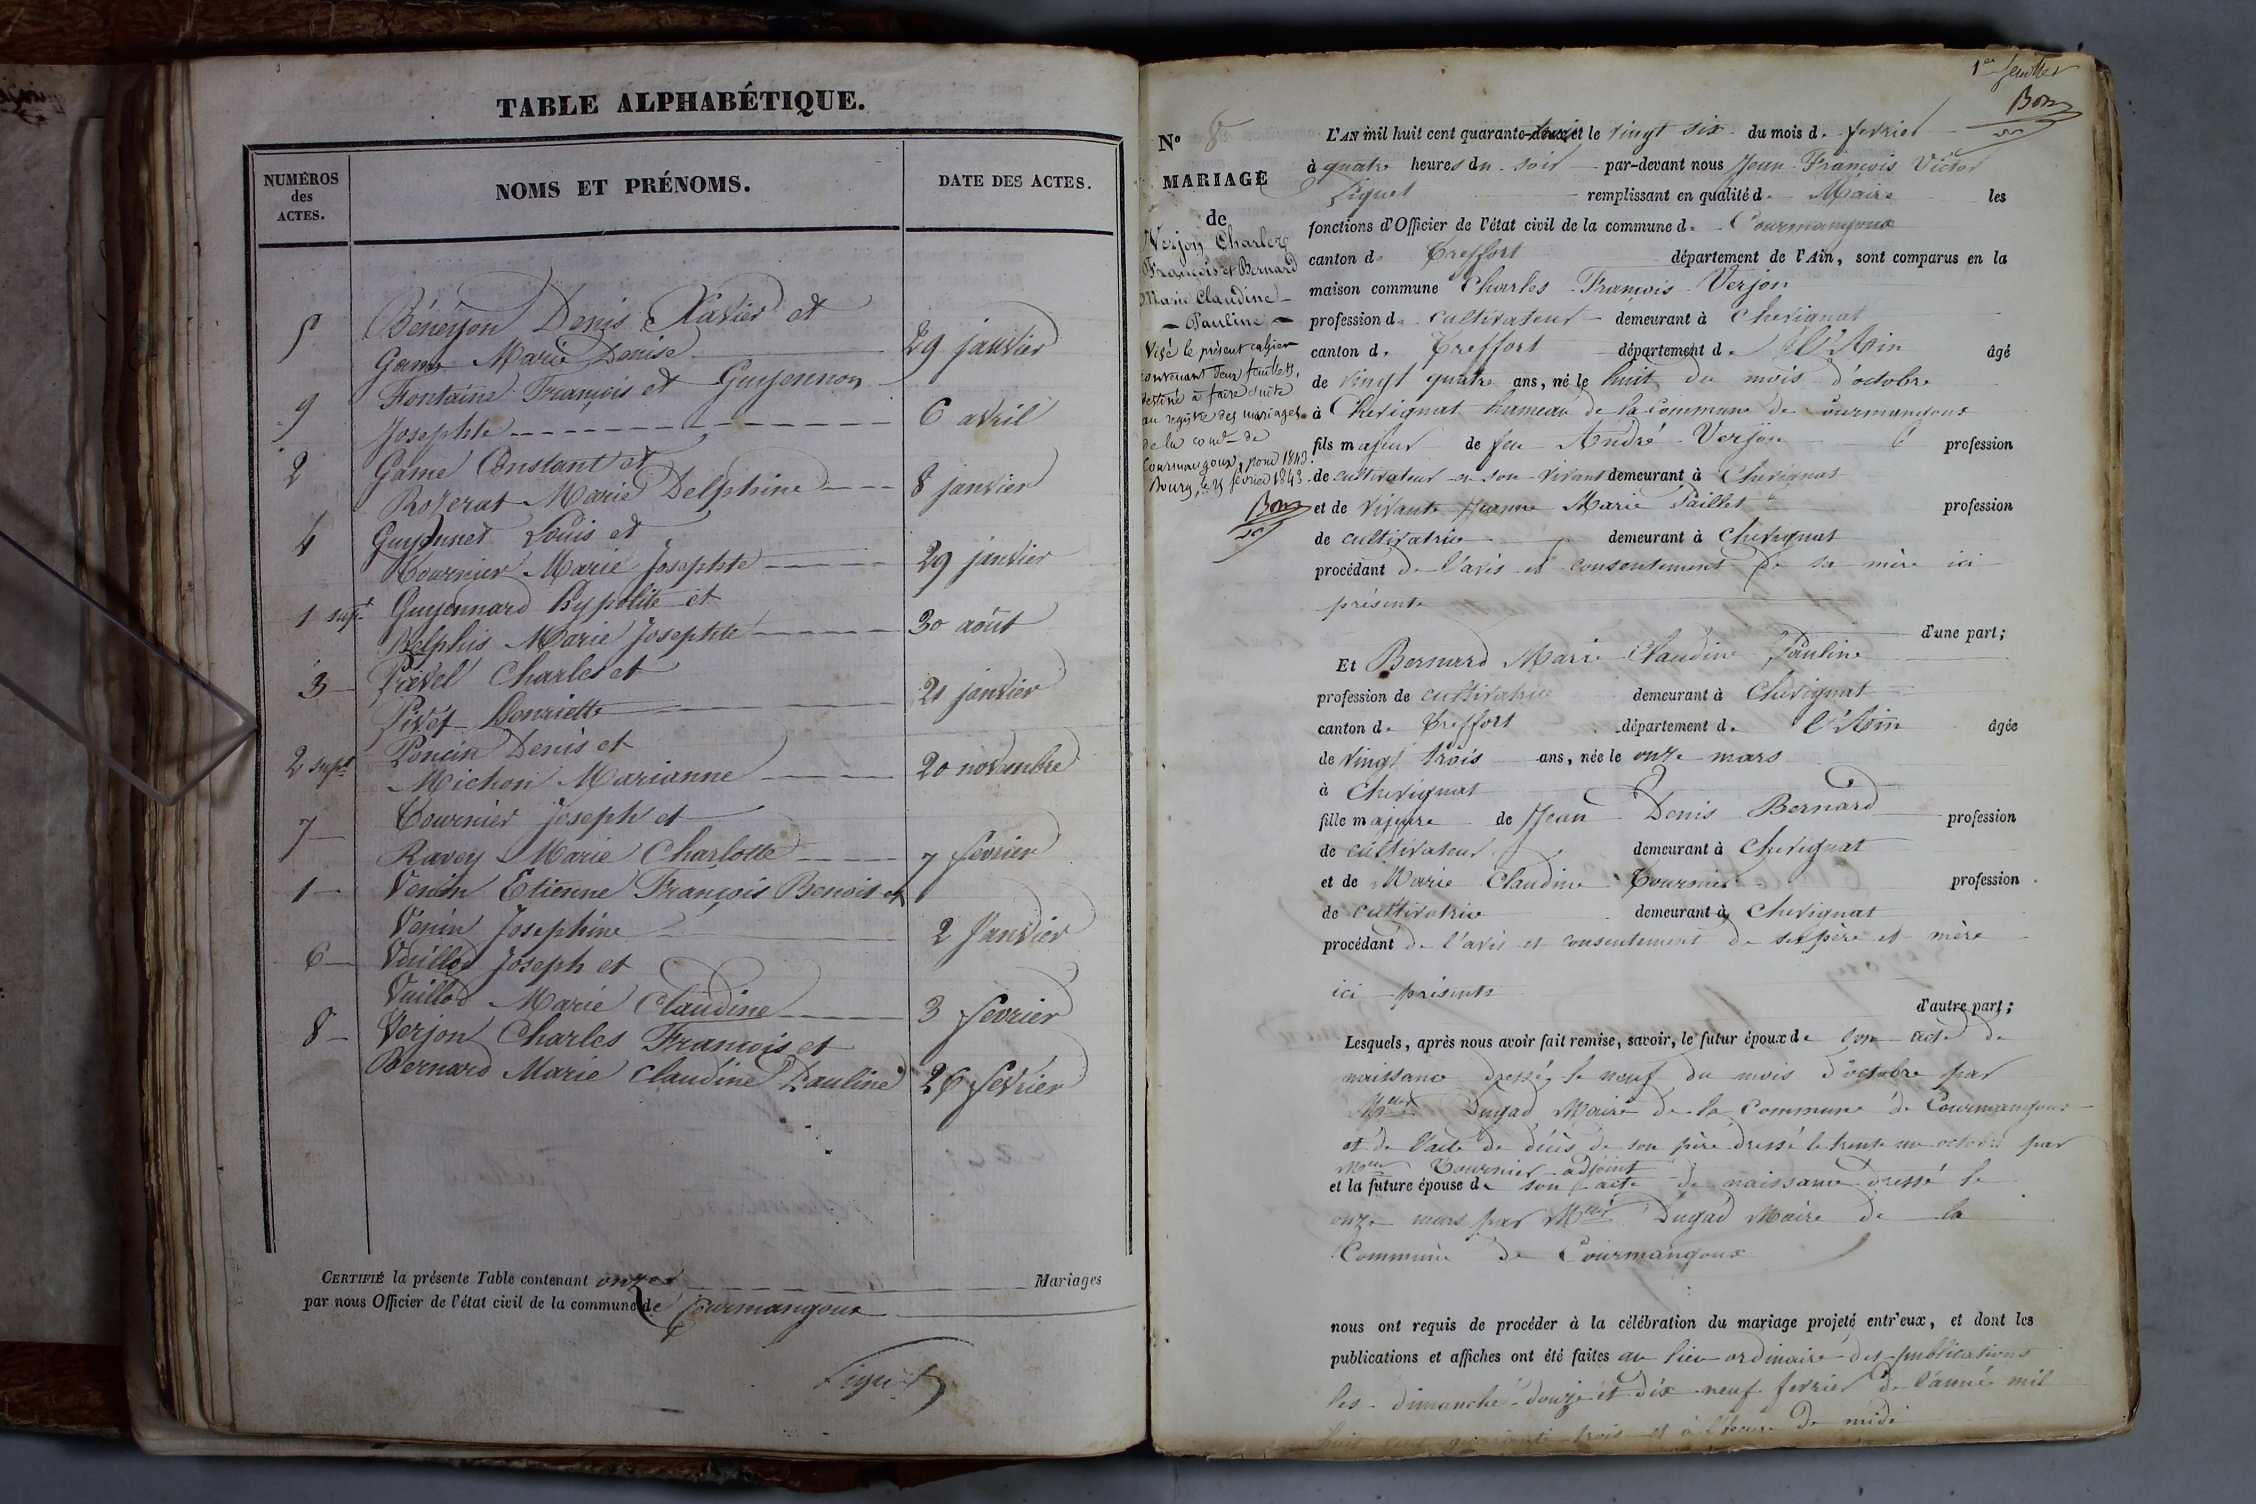 TABLE ALPHABÉTIQUE.
NUMÉROS des ACTES.
NOMS ET PRÉNOMS.
DATE DES ACTES.
5 Bénéyton Denis Xavier et
Game Marie Denise 29 janvier
9 Fontaine François et Guyennon
Josephte 6 avril
2 Game Constant et
Rozerat Marie Delphine 8 janvier
4 Guyonnet Louis et
Tournier Marie Josephte 29 janvier
1 supt Guyennard hypolite et
Delphis Marie Josephte 30 août
3 Prevel Charles et
Pivet henriette 21 janvier
2 supt Poncin Denis et
Michon Marianne 20 novembre
7 Tournier Joseph et
Ravey Marie Charlotte 7 février
1 Venin Etienne François Benoit et
Venin Josephine 2 Janvier
6 Vuillod Joseph et
Vuillod Marie Claudine 3 février
8 Verjon Charles François et
Bernard Marie Claudine Pauline 26 février
CERTIFIÉ la présente Table contenant onze Mariages
par nous Officier de l'état civil de la commune de Courmangoux
Piquet
1er feuillet
Bon
No 8
MARIAGE
de
Verjon Charles
François et Bernard
Marie Claudine
Pauline
Visé le présent cahier
contenant deux feuillets,
destiné à faire suite
au registre des mariages
de la come de
Courmangoux, pour 1843.
Bourg, le 25 février 1843.
Bon
L'AN mil huit cent quarante-trois et le vingt six du mois de fevrier
à quatre heures du soir par-devant nous Jean François Victor
Piquet remplissant en qualité de Maire les
fonctions d'Officier de l'état civil de la commune de Courmangoux
canton de Treffort département de l'Ain, sont comparus en la
maison commune Charles François Verjon
profession de cultivateur demeurant à Chevignat
canton de Treffort département de l'Ain âgé
de vingt quatre ans, né le huit du mois d'octobre
à Chevignat hameau de la commune de Courmangoux
fils majeur de feu André Verjon profession
de cultivateur en son vivant demeurant à Chevignat
et de vivante Jeanne Marie Paillet profession
de cultivatrice demeurant à Chevignat
procédant de l'avis et consentement de sa mère ici
présente
d'une part;
Et Bernard Marie Claudine Pauline
profession de cultivatrice demeurant à Chevignat
canton de Treffort département de l'Ain âgée
de vingt trois ans, née le onze mars
à Chevignat
fille majeure de Jean Denis Bernard profession
de cultivateur demeurant à Chevignat
et de Marie Claudine Tournier profession
de cultivatrice demeurant à Chevignat
procédant de l'avis et consentement de ses père et mère
ici présents
d'autre part;
Lesquels, après nous avoir fait remise, savoir, le futur époux de son acte de
naissance dressé le neuf du mois d'octobre par
Dugad Maire de la Commune de Courmangoux
et de l'acte de décès de son père dressé le trente un octobre par
Tournier adjoint
et la future épouse de son acte de naissance dressé le
onze mars par Dugad Maire de la
Commune de Courmangoux
nous ont requis de procéder à la célébration du mariage projeté entr'eux, et dont les
publications et affiches ont été faites au lieu ordinaire des publications
les dimanche douze et dix neuf fevrier de l'année mil
huit cent quarante trois et à l'heure de midi